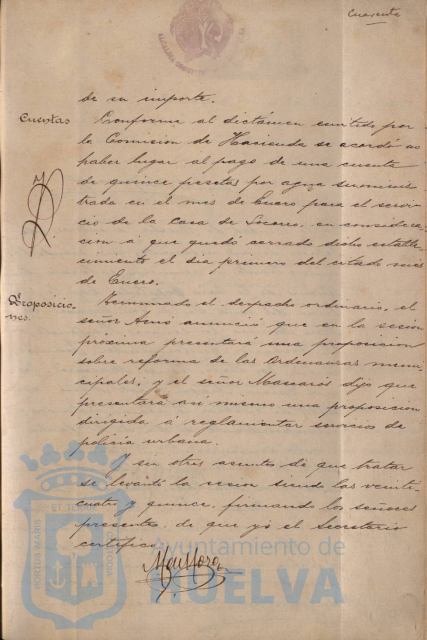 Cuarenta
de su importe.
Cuentas
Conforme al dictámen emitido por
la Comision de Hacienda se acordó no
haber lugar al pago de una cuenta
de quince pesetas por agua suminis
trada en el mes de Enero para el servi-
cio de la Casa de Socorro, en considera-
cion á que quedó cerrado dicho estable-
cimiento el dia primero del citado mes
de Enero.
Proposicio-
nes.
Terminado el despacho ordinario, el
señor anunció que en la sesion
próxima presentará una proposicion
sobre reforma de las Ordenanzas muni-
cipales, y el señor dijo que
presentará asi mismo una proposicion
dirigida á reglamentar servicios de
policia urbana.
Y sin otros asuntos de que tratar
se levantó la sesion siendo las veinti-
cuatro y quince, firmando los señores
presentes, de que yo el Secretario
certifico.
Ayuntamiento de
HUELVA